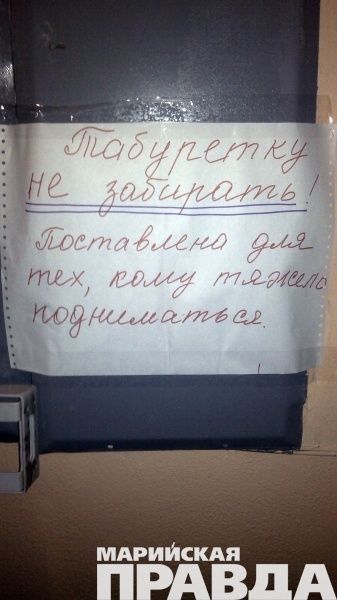 Табуретку
не забирать!
Поставлена для
тех, кому тяжело
подниматься.
МАРИЙСКАЯ
ПРАВДА